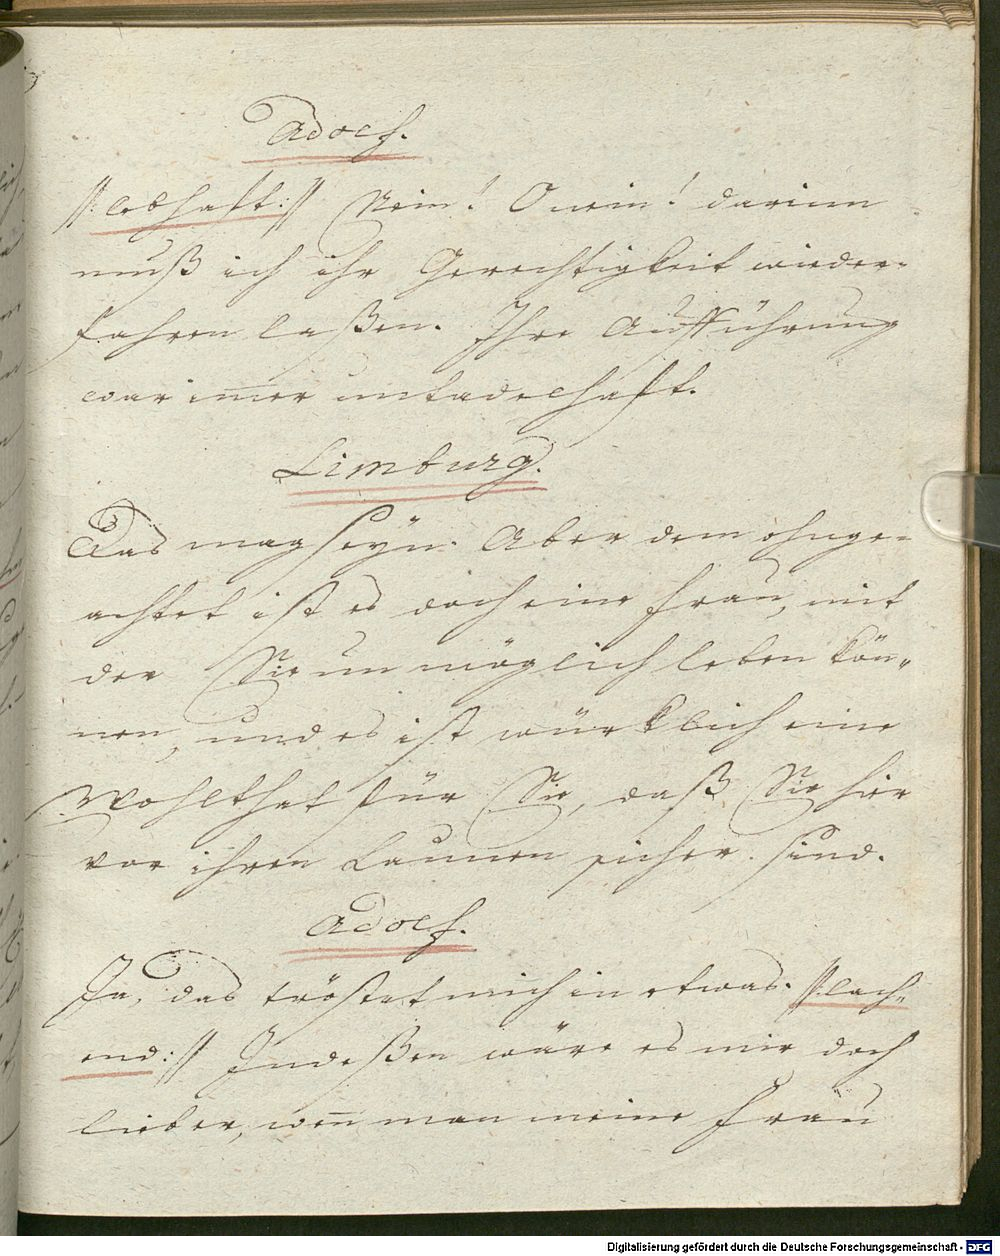 Adolf.
//:lebhaft:// Nein! O nein! darinn
muß ich ihr Gerechtigkeit wieder-
fahren laßen. Ihre Aufführung
war im̅er untadelhaft.
Limburg.
Das mag seyn. Aber dem ohnge-
achtet ist es doch eine Frau, mit
der Sie unmöglich leben kön-
nen, und es ist würklich eine
Wohlthat für Sie, daß Sie hier
vor ihren Launen sicher sind.
Adolf.
Ja, das tröstet mich in etwas. //:lach-
end:// Indeßen wäre es mir doch
lieber, wen̅ man meine Frau
Digitalisierung gefördert durch die Deutsche Forschungsgemeinschaft - DFG